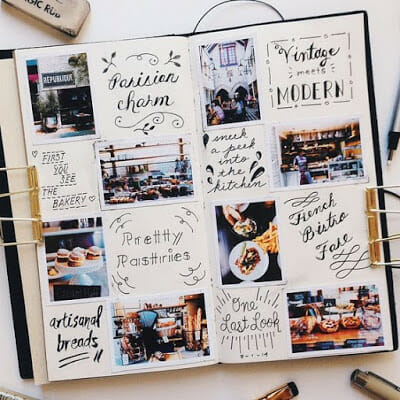 MAGIC RUB
RÉPUBLIQUE
Parisian
charm
FIRST
YOU
SEE
THE
BAKERY
Pretty
Pastries
artisanal
breads
Vintage
meets
MODERN
sneek
a peek
into
the
kitchen
French
Bistro
Fare
One
Last Look
9-1-14